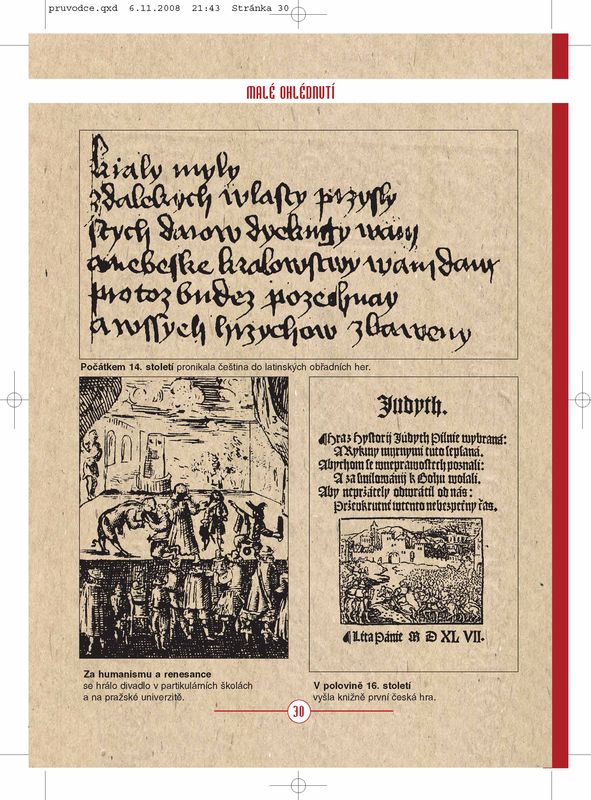 pruvodce.qxd 6.11.2008 21:43 Stránka 30
MALÉ OHLÉDNUTÍ
kraly myly
zdalekych wlasty przysly
stych darow dyekugy wam
anebeske kralowstwy wam dam
protoz budez pozechnany
awssyech hrzychow zbaweny
Počátkem 14. století pronikala čeština do latinských obřadních her.
Judyth.
Hra z Hystorij Júdyth Pilnie wybraná:
A Rykmy myrnymi tuto sepsaná.
Abychom se wneprawostech poznali:
A za smilowánij k Bohu wolali.
Aby neprzátely odwrátil od nás:
Przeukrutné wtento nebezpečny čas.
Léta Pánie M D XL VII.
Za humanismu a renesance
se hrálo divadlo v partikulárních školách
a na pražské univerzitě.
V polovině 16. století
vyšla knižně první česká hra.
30